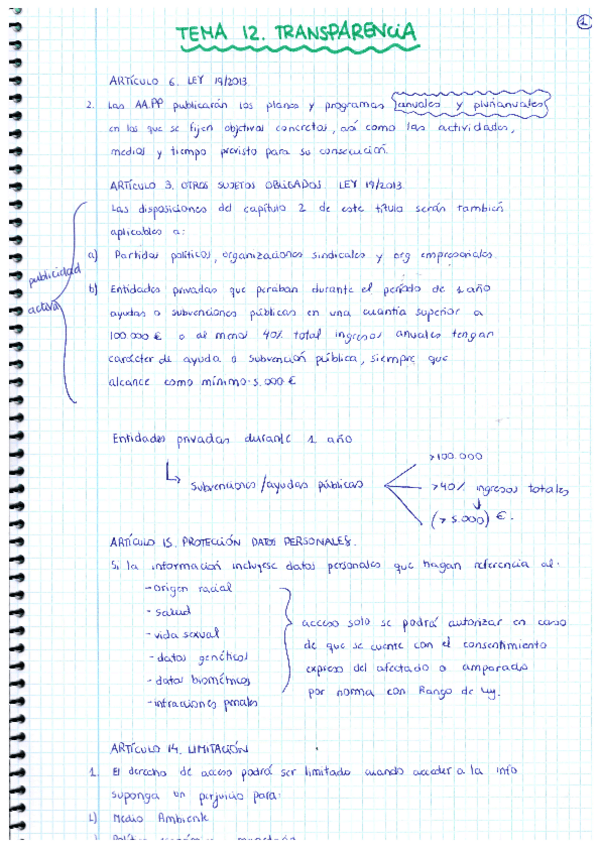 1
TEMA 12. TRANSPARENCIA
ARTÍCULO 6. LEY 19/2013.
2. Las AA.PP publicarán los planes y programas (anuales y plurianuales)
en los que se fijen objetivos concretos, así como las actividades,
medios y tiempo previsto para su consecución.
ARTÍCULO 3. OTROS SUJETOS OBLIGADOS. LEY 19/2013
Las disposiciones del capítulo 2 de este título serán también
aplicables a:
publicidad
activa
a) Partidos políticos, organizaciones sindicales y org empresariales
b) Entidades privadas que perciban durante el período de 1 año
ayudas o subvenciones públicas en una cuantía superior a
100 000 € o al menos 40% total ingresos anuales tengan
carácter de ayuda o subvención pública, siempre que
alcance como mínimo 5.000 €
Entidades privadas durante 1 año
subvenciones/ayudas públicas
>100.000
>40% ingresos totales
(>5.000) €.
ARTÍCULO 15. PROTECCIÓN DATOS PERSONALES.
Si la información incluyese datos personales que hagan referencia al.
- origen racial
- salud
- vida sexual
- datos genéticos
- datos biométricos
- infracciones penales
acceso solo se podrá autorizar en caso
de que se cuente con el consentimiento
expreso del afectado o amparado
por norma con Rango de ley.
ARTÍCULO 14. LIMITACIÓN
1. El derecho de acceso podrá ser limitado cuando acceder a la info
suponga un perjuicio para:
L) Medio Ambiente